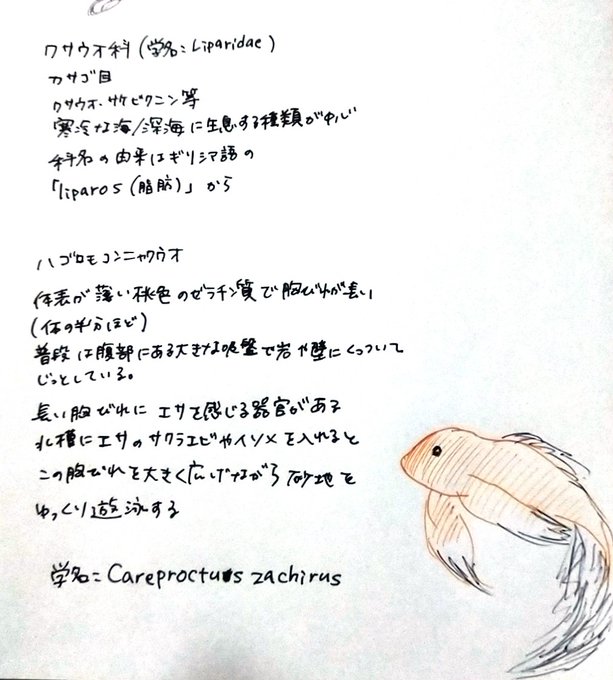 クサウオ科(学名:Liparidae)
カサゴ目
クサウオ、サケビクニン等
寒冷な海/深海に生息する種類が中心
科名の由来はギリシア語の
「liparos(脂肪)」から
ハゴロモコンニャクウオ
体表が薄い桃色のゼラチン質で胸びれが長い
(体の半分ほど)
普段は腹部にある大きな吸盤で岩や壁にくっついて
じっとしている。
長い胸びれにエサを感じる器官がある
水槽にエサのサクラエビやイソメを入れると
この胸びれを大きく広げながら砂地を
ゆっくり遊泳する
学名:Careproctus zachirus